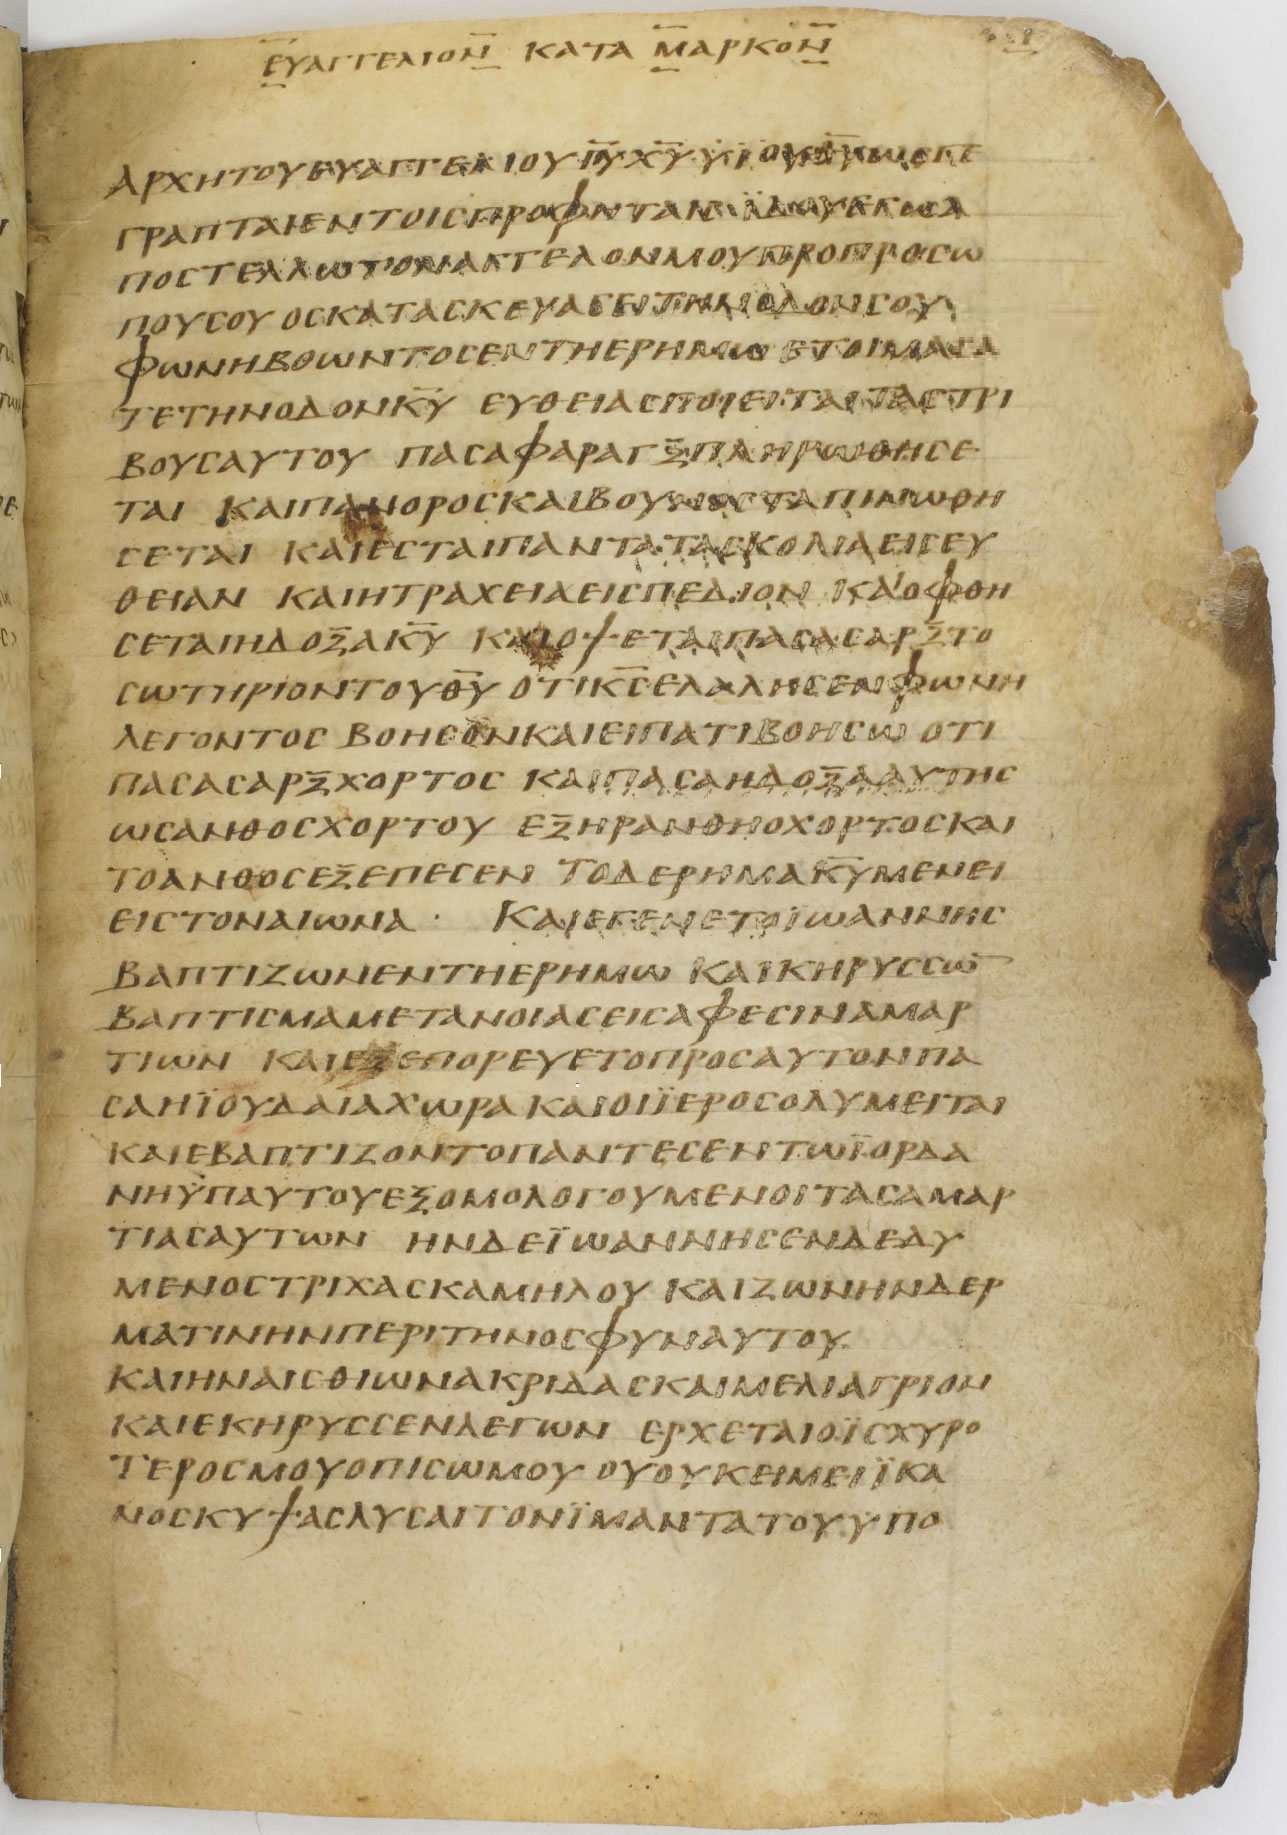 ΕΥΑΓΓΕΛΙΟΝ ΚΑΤΑ ΜΑΡΚΟΝ
ΑΡΧΗΤΟΥΕΥΑΓΓΕΛΙΟΥ Ι̅Υ̅ Χ̅Υ̅ ΥΪΟΥ
ΓΡΑΠΤΑΙΕΝΤΟΙCΠΡΟΦΗΤΑΙC ΪΔΟΥ
ΠΟCΤΕΛΛΩΤΟΝΑΓΓΕΛΟΝΜΟΥΠΡΟΠΡΟCΩ
ΠΟΥCΟΥ ΟCΚΑΤΑCΚΕΥΑCΕΙΤΗΝΟΔΟΝCΟΥ
ΦΩΝΗΒΟΩΝΤΟCΕΝΤΗΕΡΗΜΩ ΕΤΟΙΜΑCΑ
ΤΕΤΗΝΟΔΟΝΚ̅Υ̅ ΕΥΘΕΙΑCΠΟΙΕΙΤΑΙΤΑCΤΡΙ
ΒΟΥCΑΥΤΟΥ ΠΑCΑΦΑΡΑΓΞΠΛΗΡΩΘΗCΕ
ΤΑΙ ΚΑΙΠΑΝΟΡΟCΚΑΙΒΟΥΝΟCΤΑΠΙΝΩΘΗ
CΕΤΑΙ ΚΑΙΕCΤΑΙΠΑΝΤΑΤΑCΚΟΛΙΑΕΙCΕΥ
ΘΕΙΑΝ ΚΑΙΗΤΡΑΧΕΙΑΕΙCΠΕΔΙΟΝ ΚΑΙΟΦΘΗ
CΕΤΑΙΗΔΟΞΑΚ̅Υ̅ ΚΑΙΟΨΕΤΑΙΠΑCΑCΑΡΞΤΟ
CΩΤΗΡΙΟΝΤΟΥΘ̅Υ̅ ΟΤΙΚ̅C̅ΕΛΑΛΗCΕΝΦΩΝΗ
ΛΕΓΟΝΤΟC ΒΟΗCΟΝΚΑΙΕΙΠΑΤΙΒΟΗCΩ ΟΤΙ
ΠΑCΑCΑΡΞΧΟΡΤΟC ΚΑΙΠΑCΑΗΔΟΞΑΑΥΤΗC
ΩCΑΝΘΟCΧΟΡΤΟΥ ΕΞΗΡΑΝΘΗΟΧΟΡΤΟCΚΑΙ
ΤΟΑΝΘΟCΕΞΕΠΕCΕΝ ΤΟΔΕΡΗΜΑΚ̅Υ̅ΜΕΝΕΙ
ΕΙCΤΟΝΑΙΩΝΑ · ΚΑΙΕΓΕΝΕΤΟΪΩΑΝΝΗC
ΒΑΠΤΙΖΩΝΕΝΤΗΕΡΗΜΩ ΚΑΙΚΗΡΥCCΩ̅
ΒΑΠΤΙCΜΑΜΕΤΑΝΟΙΑCΕΙCΑΦΕCΙΝΑΜΑΡ
ΤΙΩΝ ΚΑΙΕΞΕΠΟΡΕΥΕΤΟΠΡΟCΑΥΤΟΝΠΑ
CΑΗΪΟΥΔΑΙΑΧΩΡΑΚΑΙΟΙΪΕΡΟCΟΛΥΜΕΙΤΑΙ
ΚΑΙΕΒΑΠΤΙΖΟΝΤΟΠΑΝΤΕCΕΝΤΩΪΟΡΔΑ
ΝΗΫΠΑΥΤΟΥΕΞΟΜΟΛΟΓΟΥΜΕΝΟΙΤΑCΑΜΑΡ
ΤΙΑCΑΥΤΩΝ ΗΝΔΕΪΩΑΝΝΗCΕΝΔΕΔΥ
ΜΕΝΟCΤΡΙΧΑCΚΑΜΗΛΟΥ ΚΑΙΖΩΝΗΝΔΕΡ
ΜΑΤΙΝΗΝΠΕΡΙΤΗΝΟCΦΥΝΑΥΤΟΥ
ΚΑΙΗΝΑΙCΘΙΩΝΑΚΡΙΔΑCΚΑΙΜΕΛΙΑΓΡΙΟΝ
ΚΑΙΕΚΗΡΥCCΕΝΛΕΓΩΝ ΕΡΧΕΤΑΙΟΪCΧΥΡΟ
ΤΕΡΟCΜΟΥΟΠΙCΩΜΟΥ ΟΥΟΥΚΕΙΜΕΙΪΚΑ
ΝΟCΚΥΨΑCΛΥCΑΙΤΟΝΪΜΑΝΤΑΤΟΥΥΠΟ